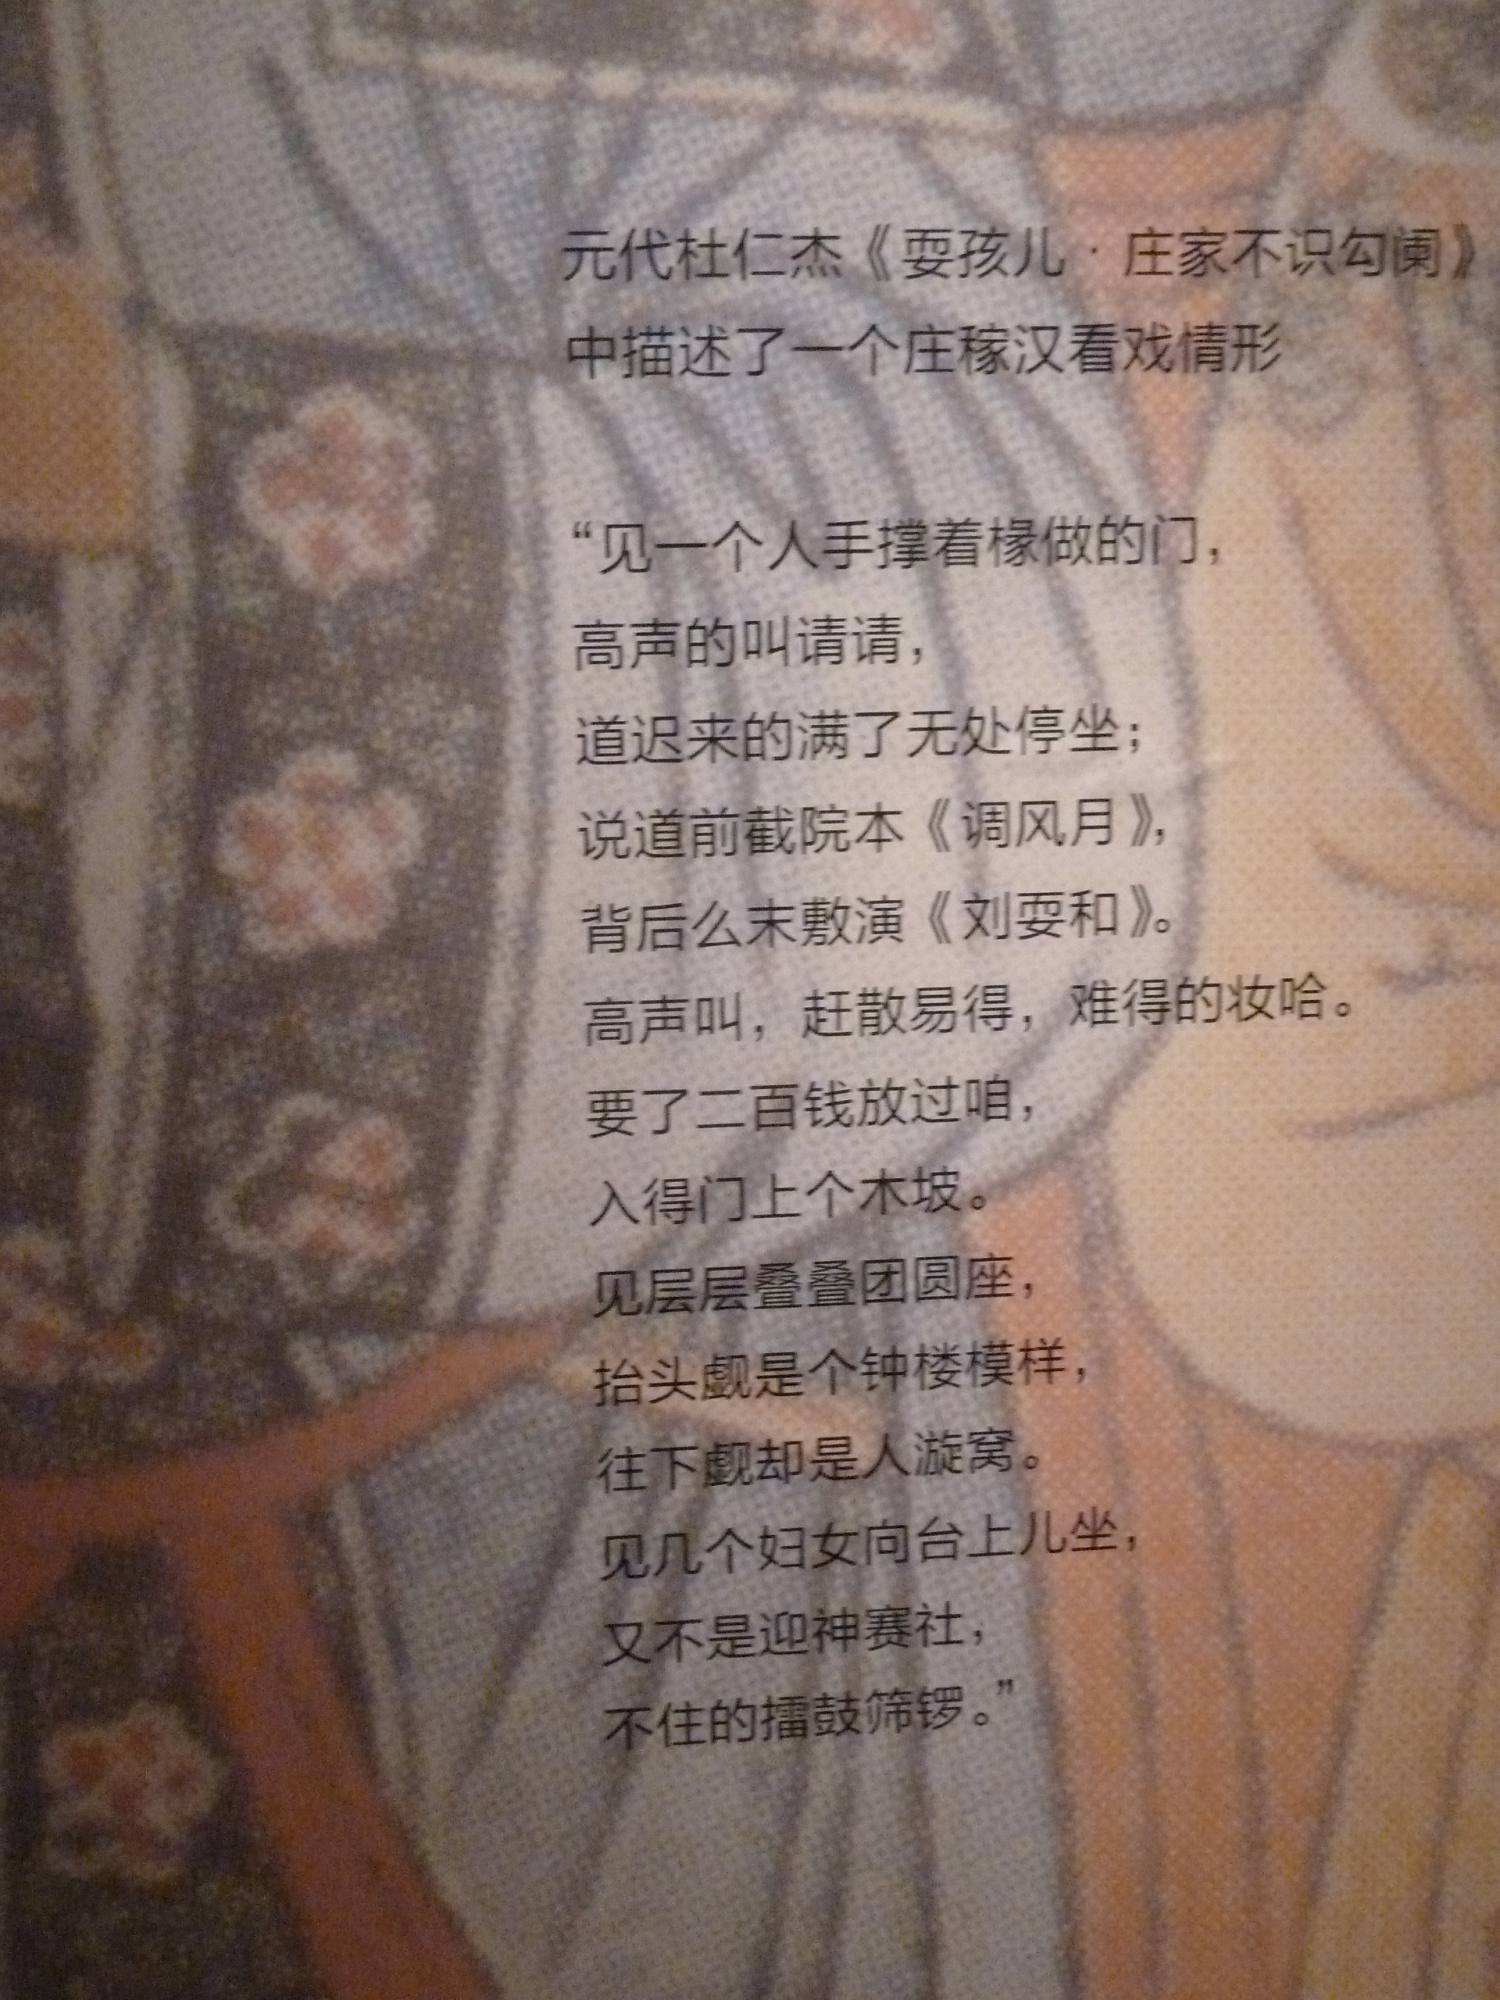 元代杜仁杰《耍孩儿·庄家不识勾阑》
中描述了一个庄稼汉看戏情形
“见一个人手撑着椽做的门，
高声的叫请请，
道迟来的满了无处停坐；
说道前截院本《调风月》，
背后么末敷演《刘耍和》。
高声叫，赶散易得，难得的妆哈。
要了二百钱放过咱，
入得门上个木坡。
见层层叠叠团圆座，
抬头觑是个钟楼模样，
往下觑却是人漩窝。
见几个妇女向台上儿坐，
又不是迎神赛社，
不住的擂鼓筛锣。”